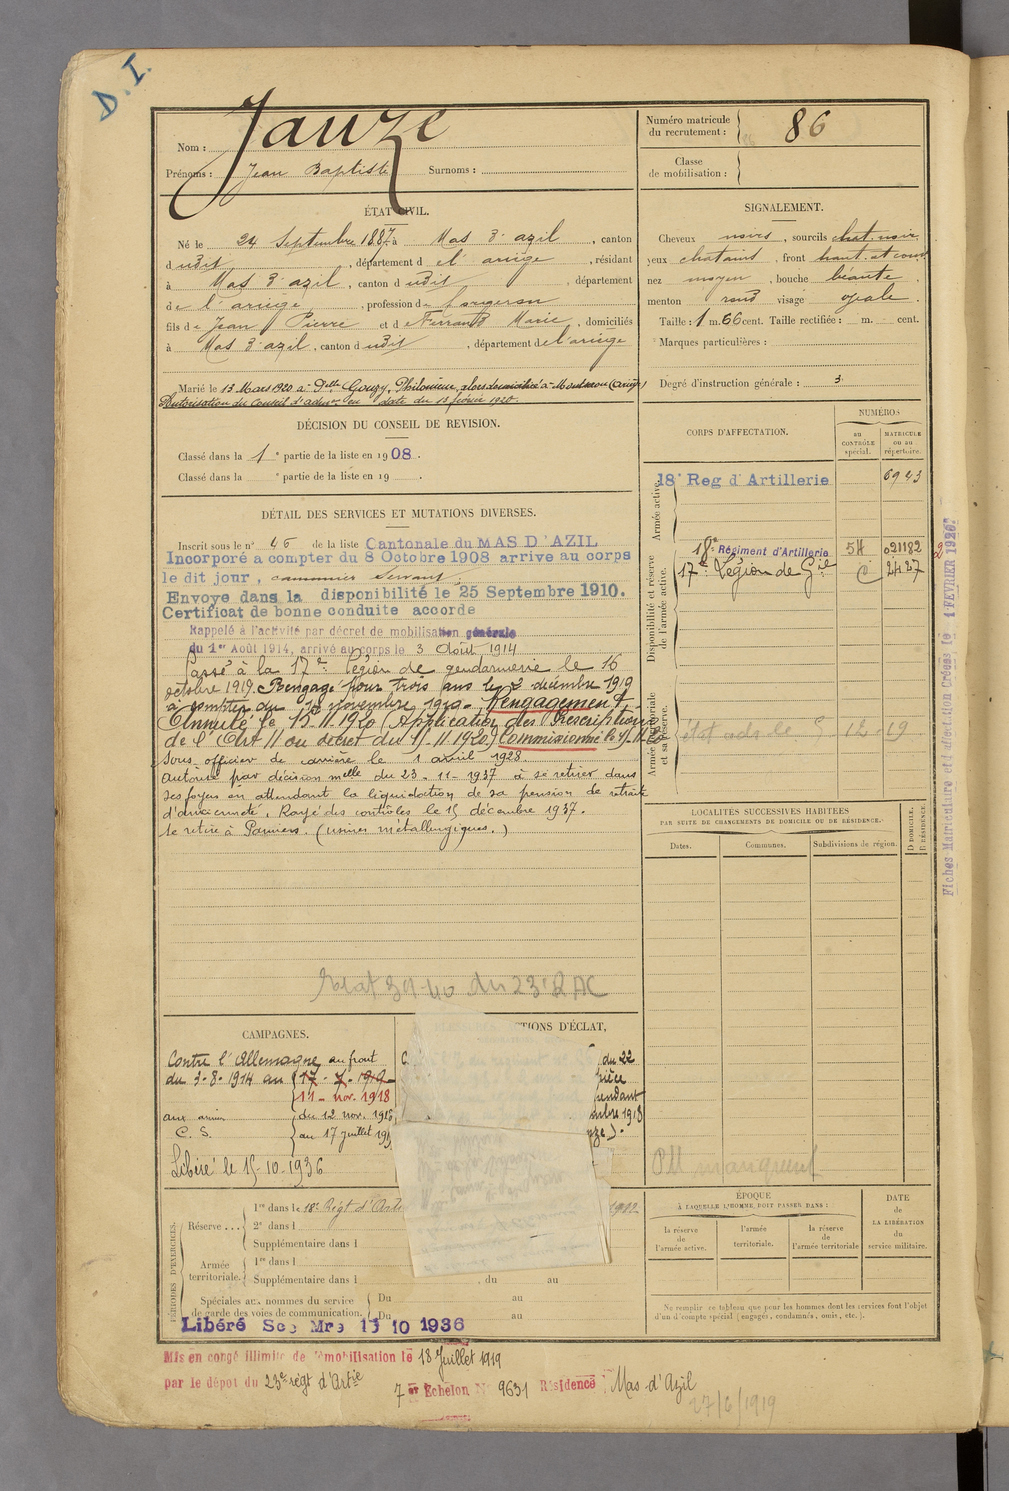 D. I.
Jauze
Nom :
Prénoms : Jean Baptiste Surnoms :
Numéro matricule
du recrutement : 86
Classe
de mobilisation :
ÉTAT CIVIL.
Né le 24 Septembre 1887, à Mas d'azil, canton
d udit, département d e l'ariège, résidant
à Mas d'azil, canton d udit, département
de l'ariège, profession de forgeron
fils de Jean Pierre et de Ferrand Marie, domiciliés
à Mas d'azil, canton d udit, département de l'ariège
Marié le 13 Mars 1920 à Delle Gouzy, Philomène, alors domiciliée à (Ariège)
Autorisation du Conseil d'admon en date du 13 février 1920.
SIGNALEMENT.
Cheveux noirs, sourcils chat. noir.
yeux chatains, front haut. et couv
nez moyen, bouche béante,
menton rond visage ovale.
Taille : 1 m. 66 cent. Taille rectifiée : m. cent.
Marques particulières :
Degré d'instruction générale : 3
DÉCISION DU CONSEIL DE REVISION.
Classé dans la 1e partie de la liste en 1908.
Classé dans la e partie de la liste en 19 .
CORPS D'AFFECTATION.
NUMÉROS
au
CONTRÔLE
spécial.
MATRICULE
ou au
répertoire.
Armée active.
18e Reg d'Artillerie 6943
Disponibilité et réserve
de l'armée active.
18e Régiment d'Artillerie 5H 021182
17e Légion de Gie 2437
Armée territoriale
et sa réserve.
12 - 19
DÉTAIL DES SERVICES ET MUTATIONS DIVERSES.
Inscrit sous le n° 46 de la liste Cantonale du MAS D'AZIL
Incorporé à compter du 8 Octobre 1908 arrive au corps
le dit jour, canonnier servant.
Envoye dans la disponibilité le 25 Septembre 1910.
Certificat de bonne conduite accorde
Rappelé à l'activité par décret de mobilisation générale
du 1er Août 1914, arrivé au corps le 3 Août 1914
Passé à la 17e Légion de gendarmerie le 16
octobre 1919. Rengagé pour trois ans le 2 décembre 1919
à compter du novembre 1919. Rengagement
Annulé le 15-11-1920 (Application des Prescriptions
de l'Art 11 du décret du 5-11-1920) Commissionné le
Sous officier de carrière le 1 avril 1928
Autorisé par décision mlle du 23-11-1937 à se retirer dans
ses foyers en attendant la liquidation de sa pension de retraite
d'ancienneté. Rayé des contrôles le 15 décembre 1937.
Se retire à Pamiers. (usines métallurgiques.)
39-40 du 23e RAC
LOCALITÉS SUCCESSIVES HABITÉES
PAR SUITE DE CHANGEMENTS DE DOMICILE OU DE RÉSIDENCE.
Dates.
Communes.
Subdivisions de région.
D DOMICILE.
R RÉSIDENCE
Fiches Matriculaire et d'affectation Créées le 1 FEVRIER 1926
CAMPAGNES.
Contre l'Allemagne au front
du 3-8-1914 au 17-7-1919
11 - nov. 1918
aux armées du 12 nov. 1918
C. S. au 17 juillet 191
Libéré le 15-10-1936
TIONS D'ÉCLAT,
du 22
pendant
1918
PÉRIODES D'EXERCICES.
Réserve ...
1re dans le 18e Régt d'Arti
2e dans l
Supplémentaire dans l
Armée
territoriale.
1re dans l
Supplémentaire dans l , du au
Spéciales aux hommes du service
de garde des voies de communication.
Du au
Du au
Libéré Sce Mre 15 10 1936
manquent
ÉPOQUE
À LAQUELLE L'HOMME DOIT PASSER DANS :
la réserve
de
l'armée active.
l'armée
territoriale.
la réserve
de
l'armée territoriale
DATE
de
LA LIBÉRATION
du
service militaire.
Ne remplir ce tableau que pour les hommes dont les services font l'objet
d'un décompte spécial (engagés, condamnés, omis, etc.).
Mis en congé illimité de démobilisation le 18 Juillet 1919
par le dépot du 23e régt d'Artie
7 er Echelon N° 9631 Résidence Mas d'Azil
27/6/1919